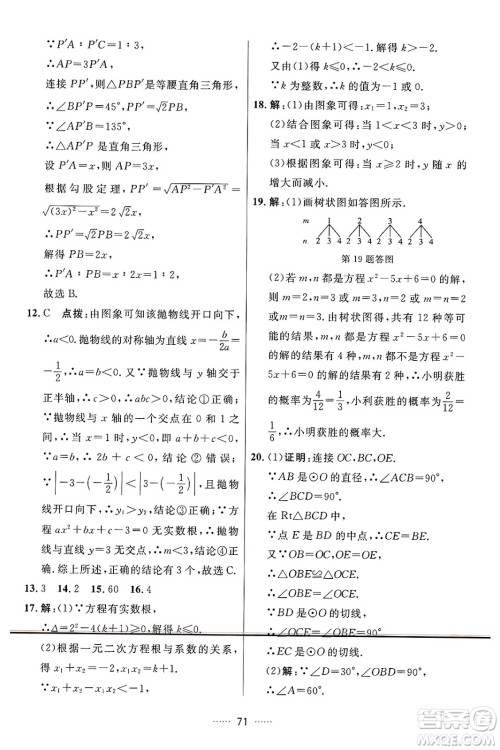 ∵P′A∶P′C=1∶3,
∴AP=3P′A.
连接 PP′,则△PBP′是等腰直角三角形,
∴∠BP′P=45°,PP′=√2PB.
∵∠AP′B=135°,
∴△APP′是直角三角形.
设 P′A=x,则 AP=3x.
根据勾股定理,PP′=√(AP²−P′A²)
=√((3x)²−x²)=2√2x.
∴PP′=√2PB=2√2x.
解得 PB=2x.
∴P′A∶PB=x∶2x=1∶2.
故选 B.
12. C 点拨:由图象可知该抛物线开口向下,
∴a<0.抛物线的对称轴为直线−b/2a=
−1/2,∴b=a<0.又∵抛物线与 y 轴交于
正半轴,∴c>0,∴abc>0,结论①正确.
∵抛物线与 x 轴的一个交点在 0 和 1 之
间,∴a+b+c<0,结论②错误.
∵|−3−(−1/2)|<|3−(−1/2)|,抛物
线开口向下,∴y₁>y₂,结论③正确.
∵方程 ax²+bx+c=t 无实数根,∴抛物线
与直线 y=t 无交点,∴t>n,结论④正
确.综上所述,结论①③④正确,故选 C.
13. 3 14. 2 15. 60 16. 4
17. 解:(1)∵方程有实数根,
∴Δ=2²−4(k+1)≥0.解得 k≤0.
(2)根据一元二次方程根与系数的关系,
得 x₁+x₂=−2,x₁x₂=k+1,
x₁+x₂−x₁x₂=−2−(k+1).
∴−2−(k+1)<−1.解得 k>−2.
又由(1)得 k≤0,∴−2<k≤0.
∵k 为整数,∴k 的值为−1 或 0.
18. 解:(1)由图象可得:x₁=1,x₂=3.
(2)结合图象可得:当 x<1 或 x>3 时,y<0
当 1<x<3 时,y>0.
(3)根据图象可得:当 x≥2 时,y 随 x 的
增大而减小.
19. 解:(1)画树状图如答图.
m 1 2 3 4
n 2 3 4 1 3 4 1 2 4 1 2 3
第 19 题答图
(2)若 m,n 都是方程 x²−5x+6=0 的解
时,则 m=2,n=3 或 m=3,n=2;若 m,n
都不是方程 x²−5x+6=0 的解时,则
m=1,n=4 或 m=4,n=1.
由树状图得:共有 12 种等可能的结果,
m,n 都是方程 x²−5x+6=0 的解的结果
有 2 种,m,n 都不是方程 x²−5x+6=0
的解的结果有 2 种,∴小明获胜
的概率为 4/12=1/3,小利获胜的概率为 2/12=
1/6,∴小明获胜的概率大.
20. (1)证明:连接 OC,BC,OE.
∵AB 是⊙O 的直径,∴∠ACB=90°,
∴∠BCD=90°.
在 Rt△DCB 中,
∵点 E 是 BD 的中点,∴CE=BE.
又∵OB=OC,OE=OE,
∴△OBE≌△OCE.
∴∠OBE=∠OCE.
∵BD 是⊙O 的切线,
∴∠OCE=∠OBE=90°.
∴EC 是⊙O 的切线.
(2)解:∵∠D=30°,∴∠A=60°.
∵BD 是⊙O 的切线,
71